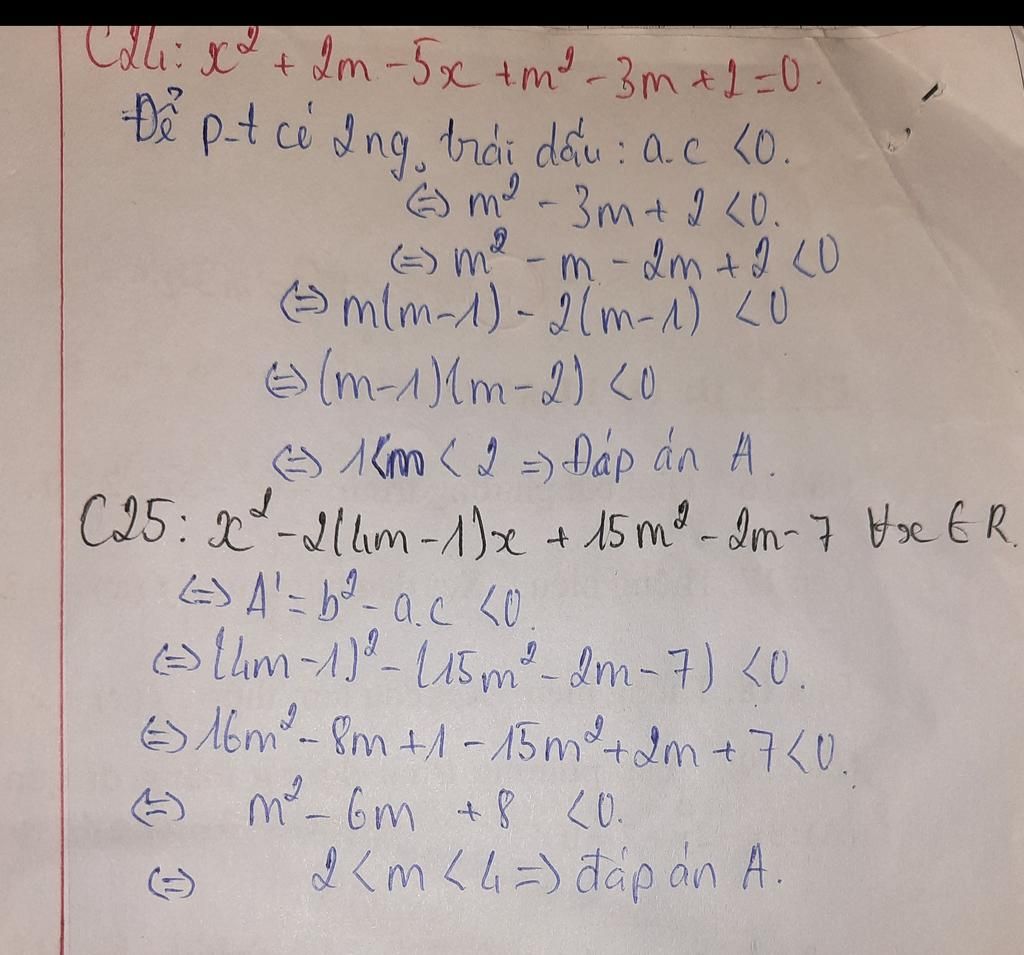 C24: x² + 2m - 5x + m² - 3m + 2 = 0.
Để p-t có 2 ng. trái dấu: a.c < 0.
⇔ m² - 3m + 2 < 0.
⇔ m² - m - 2m + 2 < 0
⇔ m(m-1) - 2(m-1) < 0
⇔ (m-1)(m-2) < 0
⇔ 1 < m < 2 ⇒ Đáp án A.
C25: x² - 2(4m-1)x + 15m² - 2m - 7 ∀x ∈ R.
⇔ Δ' = b² - a.c < 0
⇔ (4m-1)² - (15m² - 2m - 7) < 0.
⇔ 16m² - 8m + 1 - 15m² + 2m + 7 < 0.
⇔ m² - 6m + 8 < 0.
⇔ 2 < m < 4 ⇒ đáp án A.